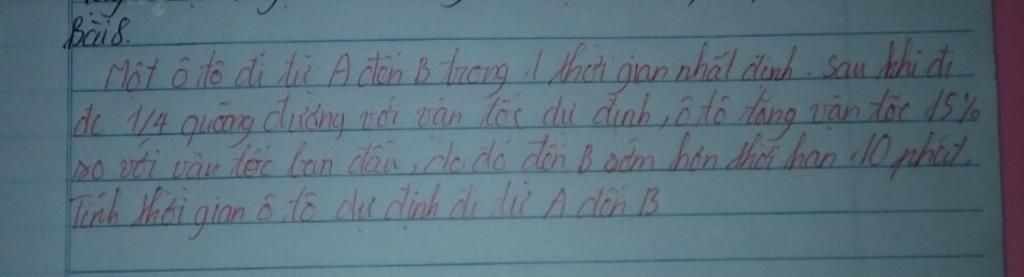 Bài 8.
Một ô tô đi từ A đến B trong 1 thời gian nhất định. Sau khi đi
đc 1/4 quãng đường với vận tốc dự định, ô tô tăng vận tốc 15%
so với vận tốc ban đầu, do đó đến B sớm hơn thời hạn 10 phút.
Tính thời gian ô tô dự định đi từ A đến B